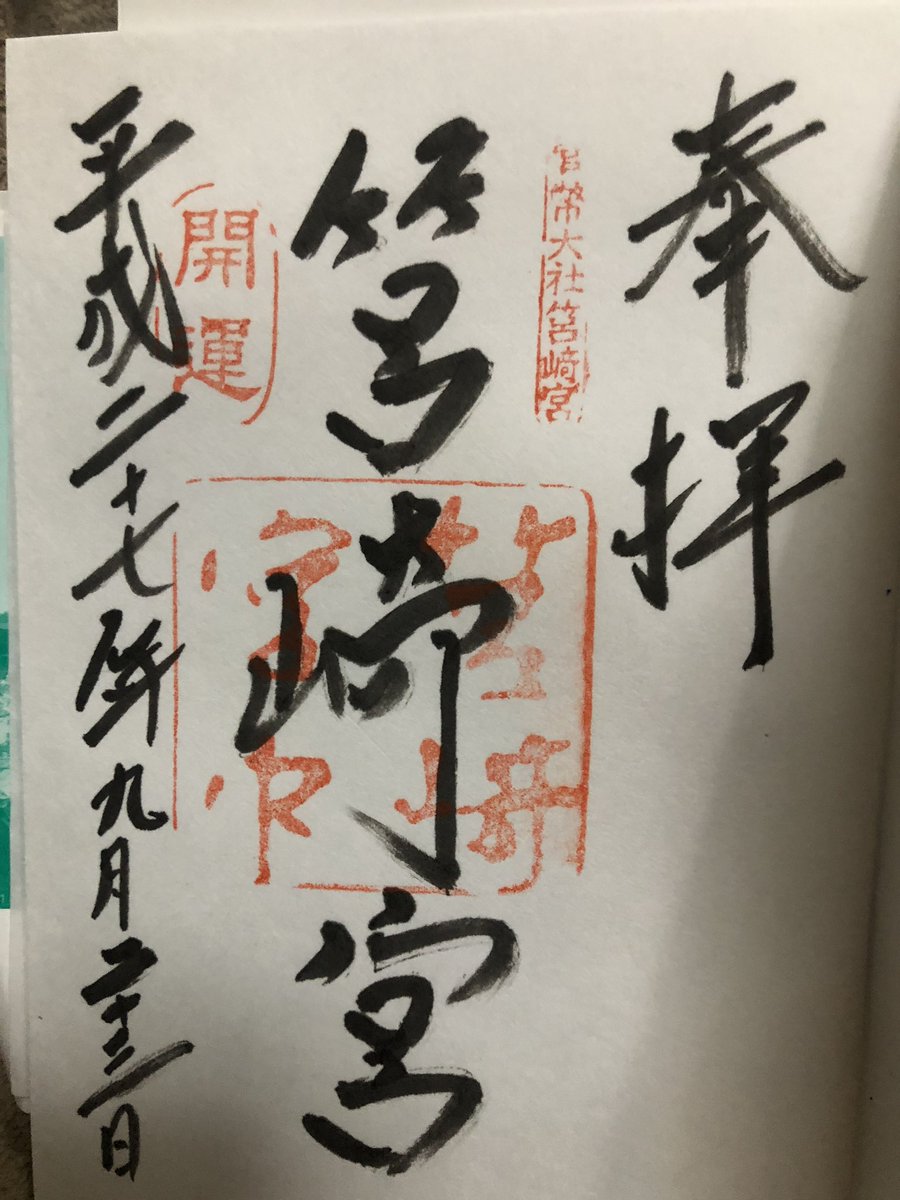 奉拝
官幣大社筥崎宮
筥崎宮
筥崎宮印
開運
平成二十七年九月二十三日